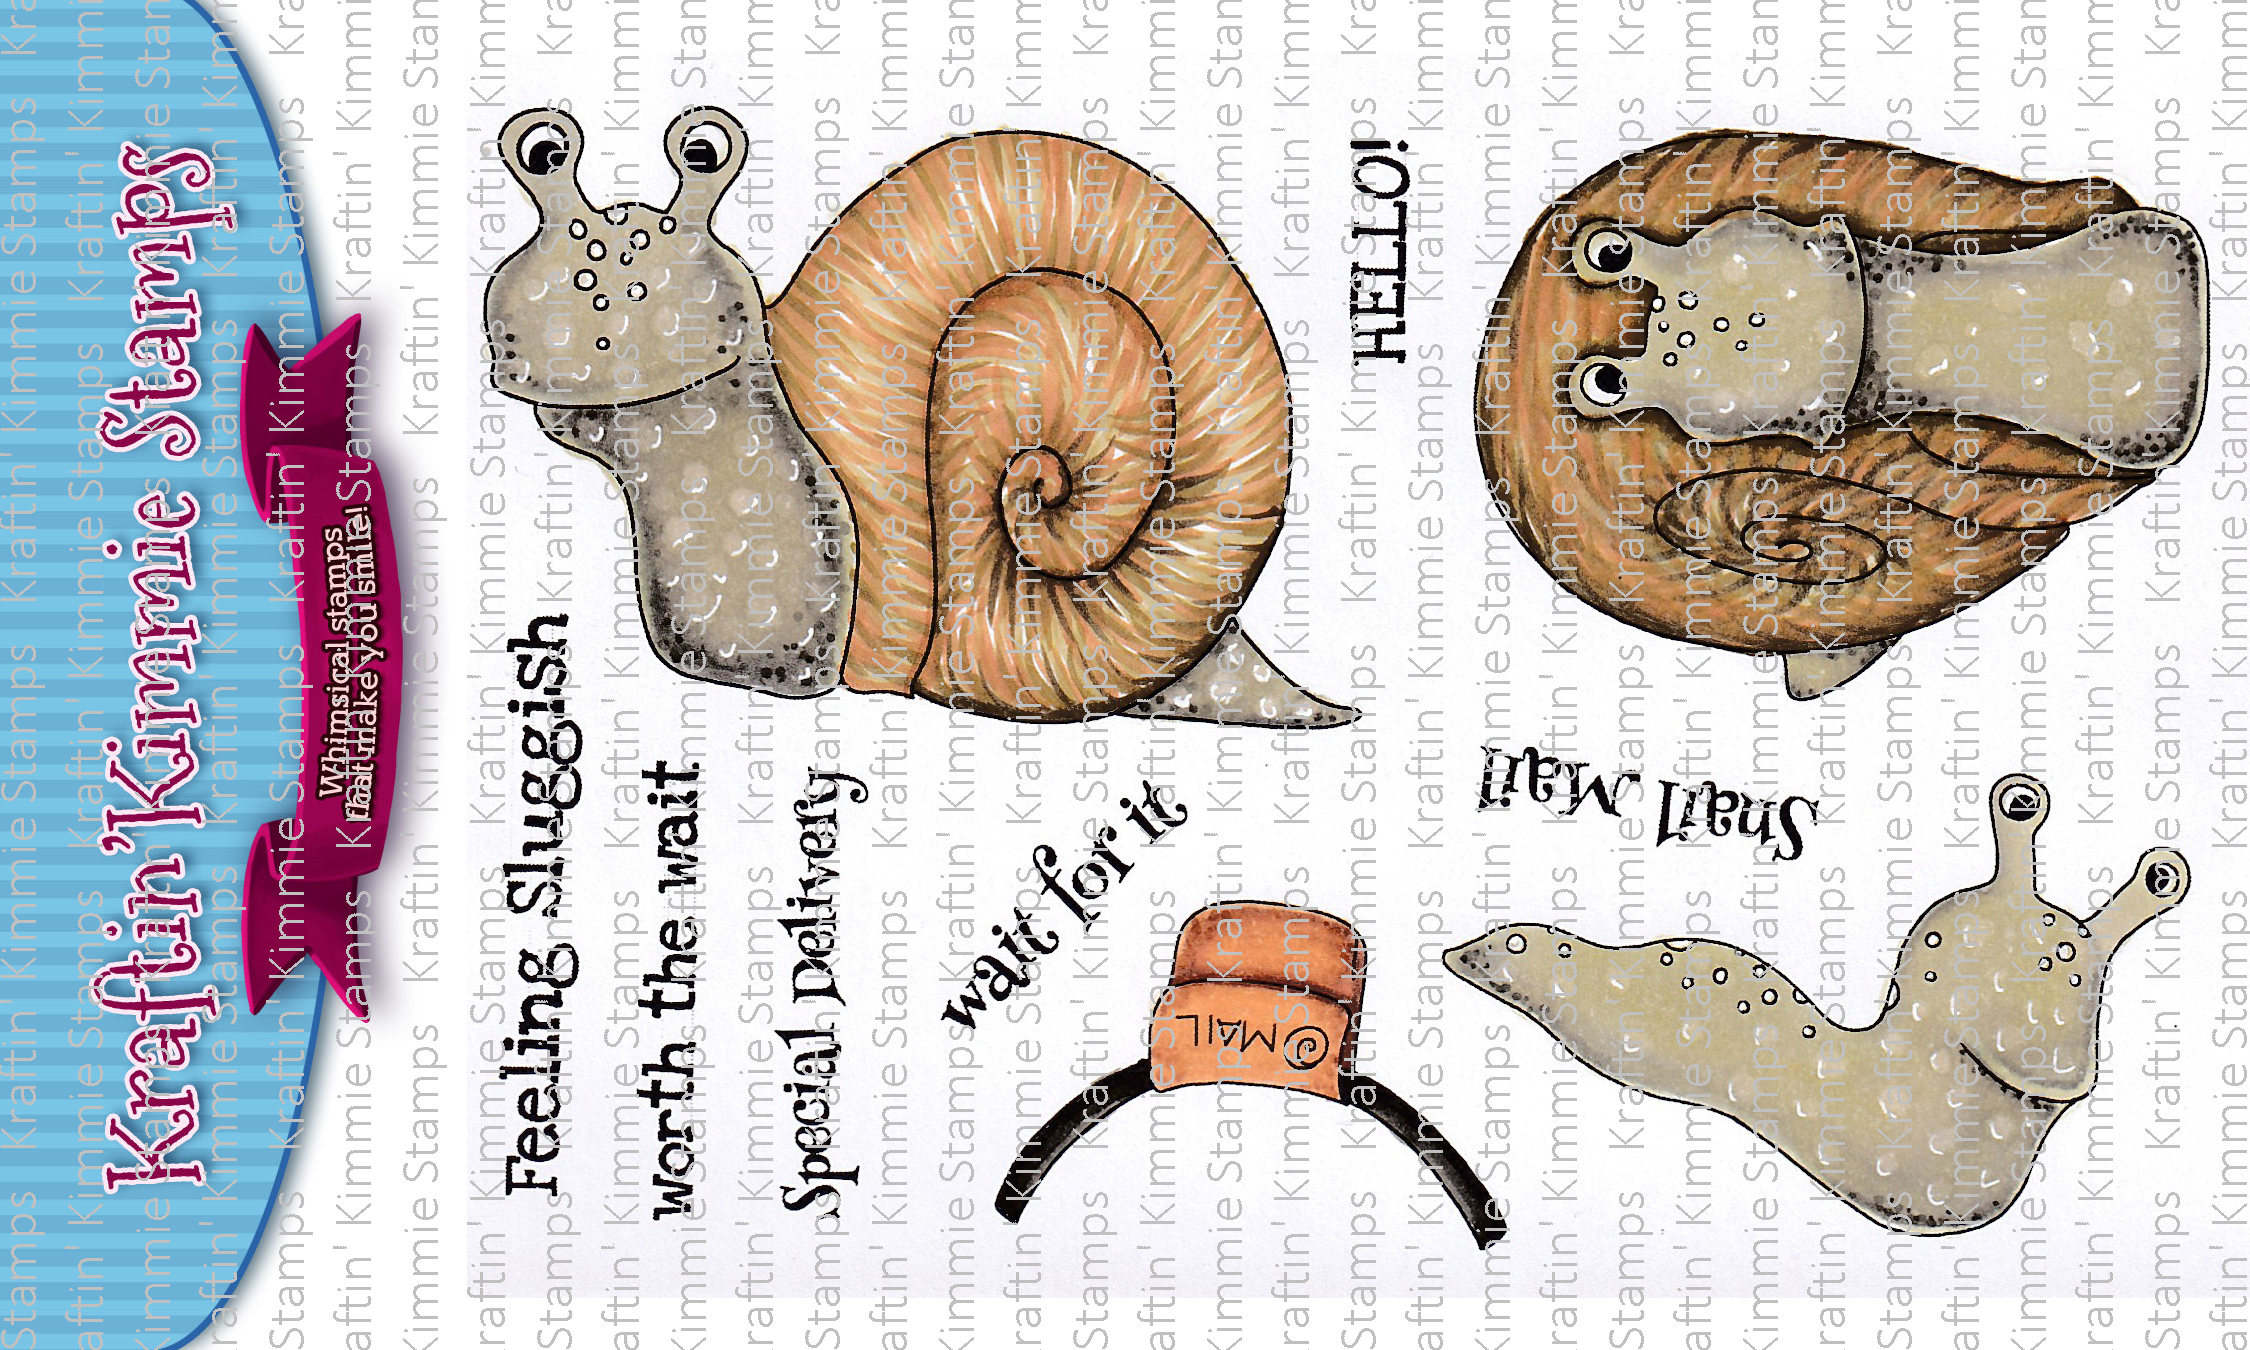 Kraftin' Kimmie Stamps
Whimsical stamps
that make you smile!
Feeling Sluggish
worth the wait
Special Delivery
wait for it
MAIL
HELLO!
Snail Mail
Kraftin' Kimmie Stamps